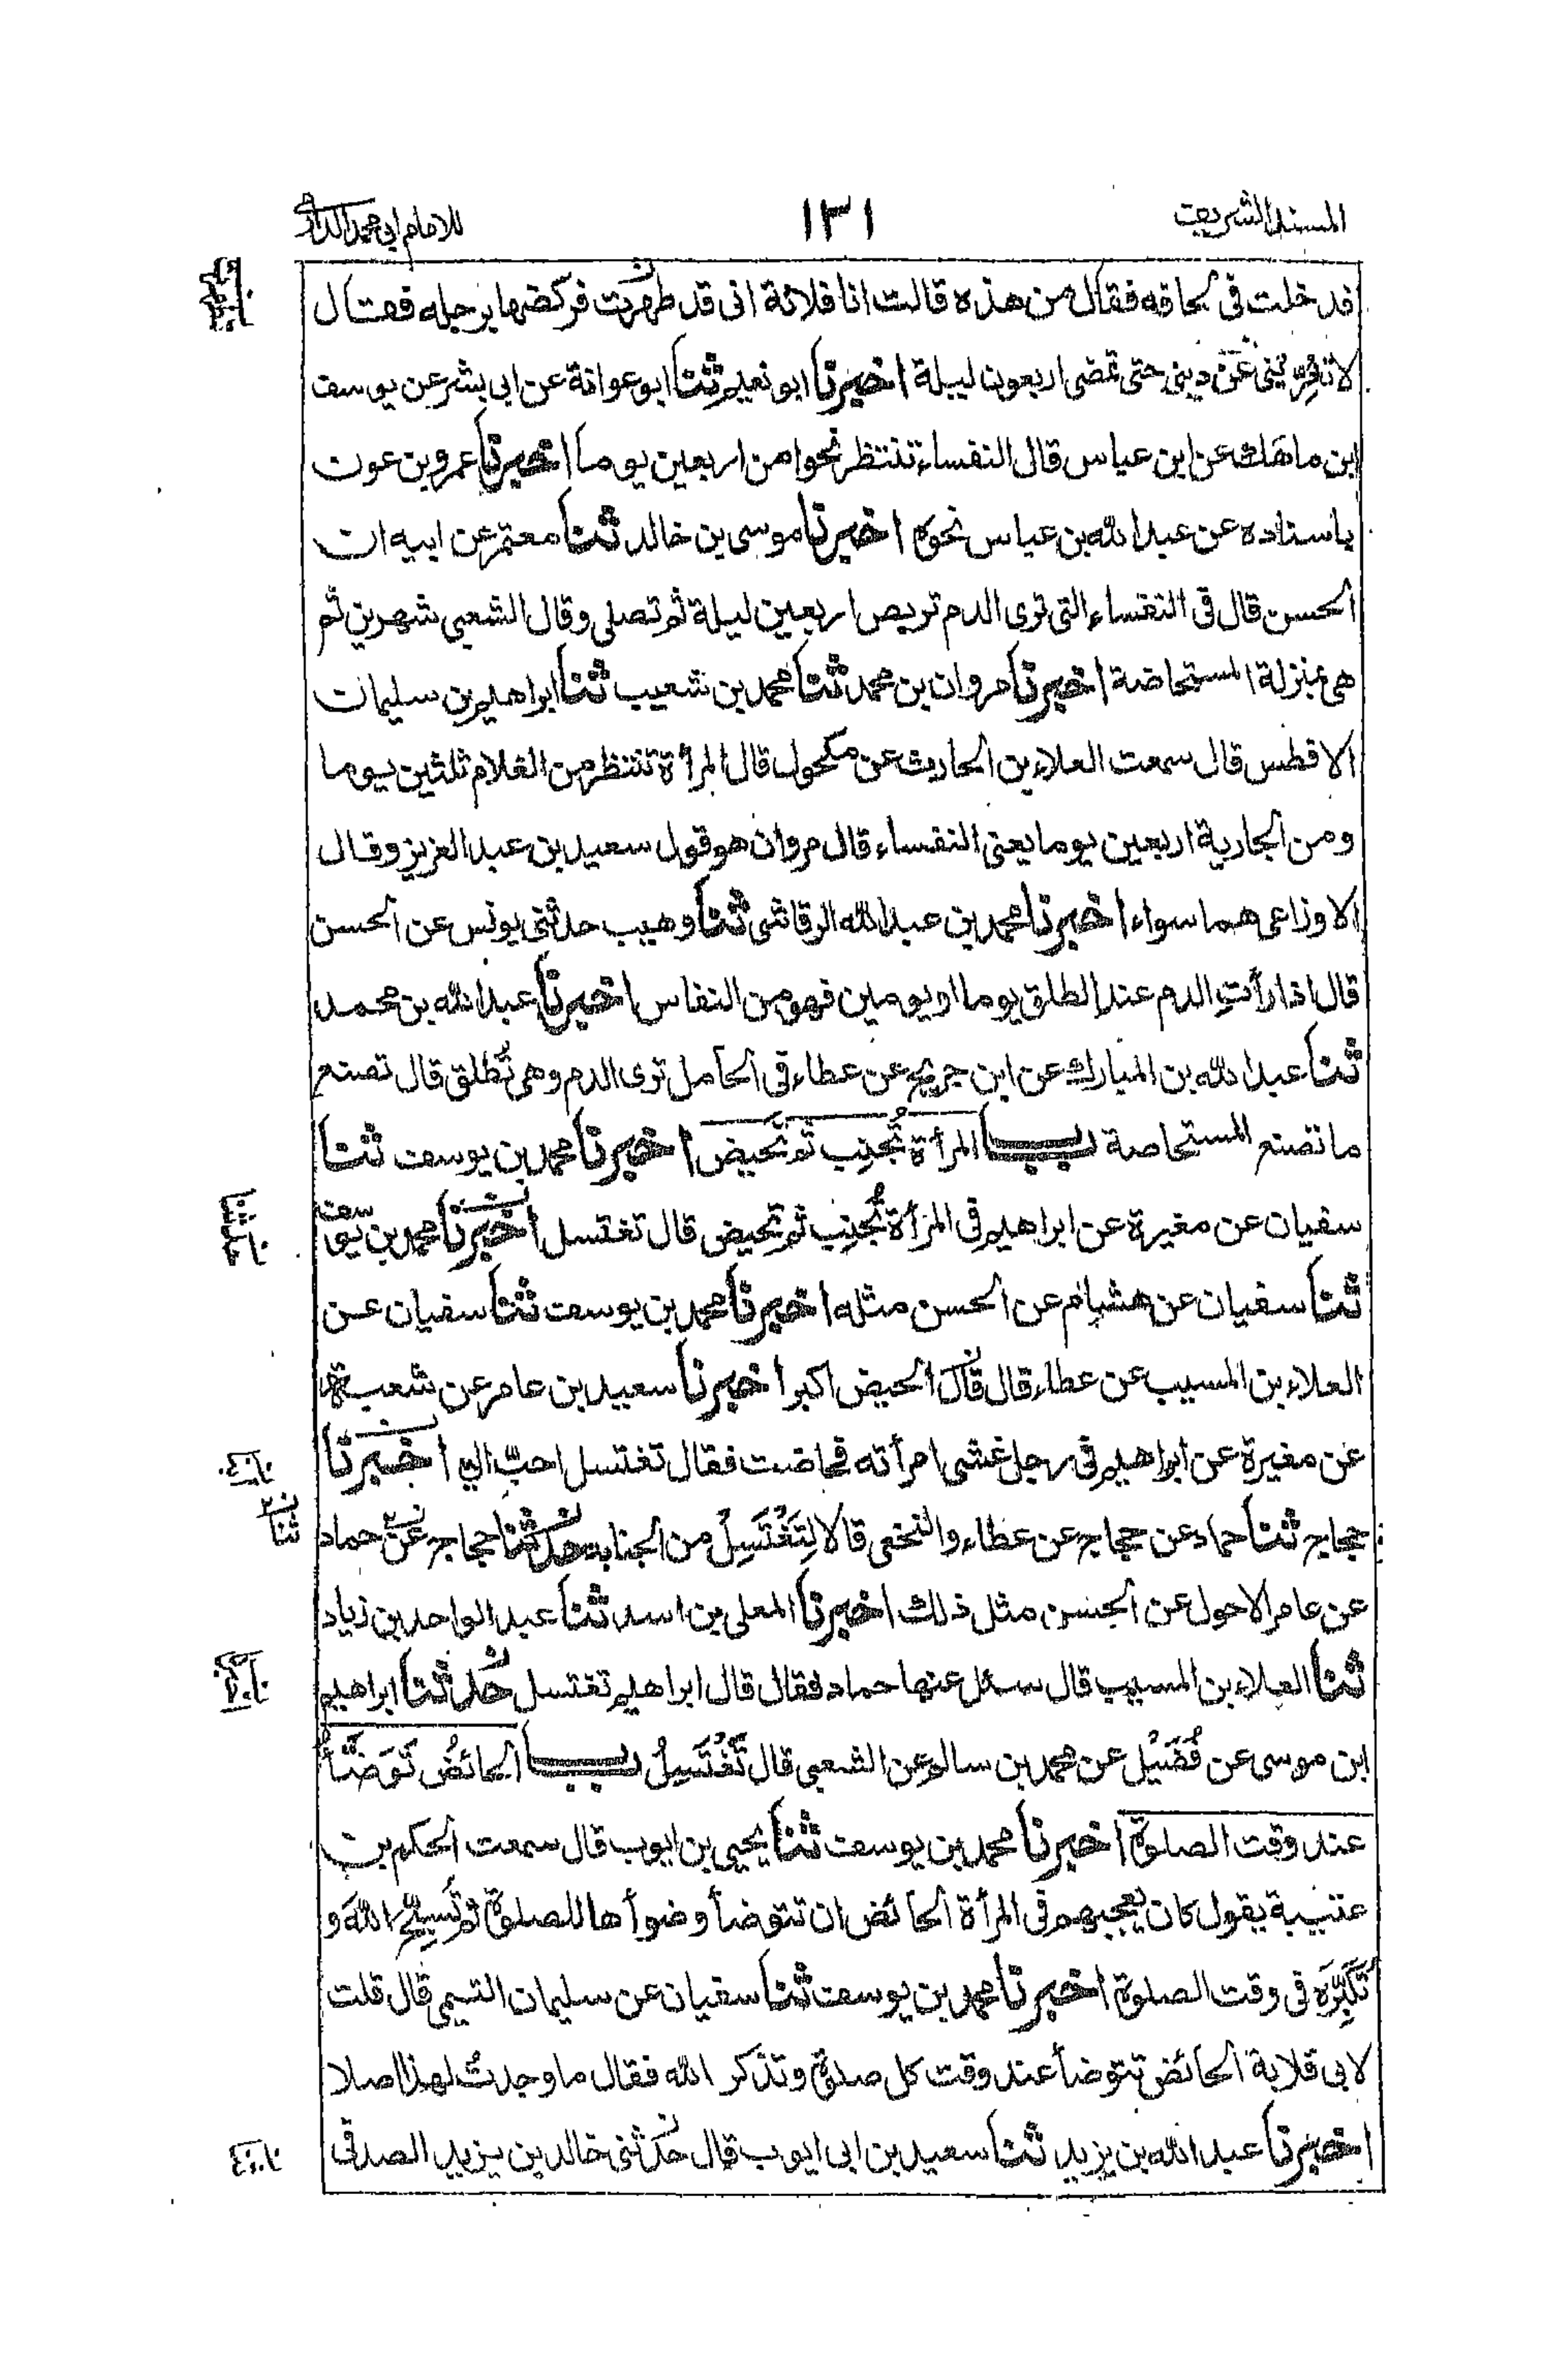 المسند الشريف ١٣١ للامام ابي محمد الدارمي
فدخلت في لحافه فقال من هذه قالت انا فلانة اني قد طهرت فركضها برجله فقال
لا تغرّيني عن ديني حتى تمضي اربعون ليلة اخبرنا ابو نعيم ثنا ابو عوانة عن ابي بشر عن يوسف
ابن ماهَك عن ابن عباس قال النفساء تنتظر نحوا من اربعين يوما اخبرنا عمرو بن عون
باسناده عن عبد الله بن عباس نحوه اخبرنا موسى بن خالد ثنا معتمر عن ابيه ان
الحسن قال في النفساء التي ترى الدم تربص اربعين ليلة ثم تصلي وقال الشعبي شهرين ثم
هي بمنزلة المستحاضة اخبرنا مروان بن محمد ثنا محمد بن شعيب ثنا ابراهيم بن سليمان
الافطس قال سمعت العلاء بن الحارث عن مكحول قال المرأة تنتظر من الغلام ثلثين يوما
ومن الجارية اربعين يوما يعني النفساء قال مروان هو قول سعيد بن عبد العزيز وقال
الاوزاعي هما سواء اخبرنا محمد بن عبد الله الرقاشي ثنا وهيب حدثني يونس عن الحسن
قال اذا رأتِ الدم عند الطلق يوما او يومين فهو من النفاس اخبرنا عبد الله بن محمد
ثنا عبد الله بن المبارك عن ابن جريج عن عطاء في الحامل ترى الدم وهي تُطلق قال تصنع
ما تصنع المستحاضة باب المرأة تُجنِب ثم تَحيض اخبرنا محمد بن يوسف ثنا
سفيان عن مغيرة عن ابراهيم في المرأة تُجنِب ثم تحيض قال تغتسل اخبرنا محمد بن يوسف
ثنا سفيان عن هشام عن الحسن مثله اخبرنا محمد بن يوسف ثنا سفيان عن
العلاء بن المسيب عن عطاء قال قال الحيض اكبر اخبرنا سعيد بن عامر عن شعبة
عن مغيرة عن ابراهيم في رجل غشي امرأته فحاضت فقال تغتسل احبّ الي اخبرنا
حجاج ثنا حماد عن حجاج عن عطاء والنخعي قالا لِتَغْتَسِلْ من الجنابة حدثنا حجاج عن حماد
عن عامر الاحول عن الحسن مثل ذلك اخبرنا المعلى بن اسد ثنا عبد الواحد بن زياد
ثنا العلاء بن المسيب قال سئل عنها حماد فقال قال ابراهيم تغتسل حدثنا ابراهيم
ابن موسى عن فُضَيْل عن محمد بن سالم عن الشعبي قال تَغْتَسِلُ باب الحائضُ تَوَضَّأُ
عند وقت الصلوة اخبرنا محمد بن يوسف ثنا يحيى بن ايوب قال سمعت الحكم بن
عتيبة يقول كان يعجبهم في المرأة الحائض ان تتوضأ وضوأها للصلوة ثم تُسبِّح الله و
تُكَبِّرَه في وقت الصلوة اخبرنا محمد بن يوسف ثنا سفيان عن سليمان التيمي قال قلت
لابي قلابة الحائض تتوضأ عند وقت كل صلوة وتذكر الله فقال ما وجدتُ لهذا اصلا
اخبرنا عبد الله بن يزيد ثنا سعيد بن ابي ايوب قال حدثني خالد بن يزيد الصدفي
ثنا